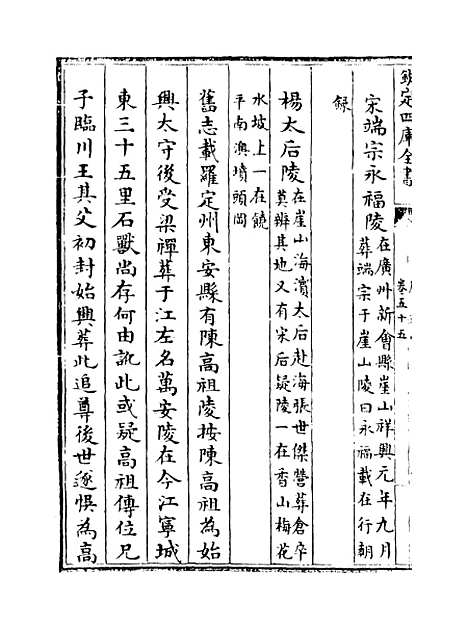 欽定四庫全書
卷五十五
宋端宗永福陵在廣州新會縣崖山祥興元年九月
葬端宗于崖山陵曰永福載在行朝
錄
楊太后陵在崖山海濱太后赴海張世傑營葬倉卒
莫辨其地又有宋后疑陵一在香山梅花
水坡上一在饒
平南澳墳頭岡
舊志載羅定州東安縣有陳高祖陵按陳高祖為始
興太守後受梁禪葬于江左名萬安陵在今江寧城
東三十五里石獸尚存何由訛此或疑高祖傳位兄
子臨川王其父初封始興葬此追尊後世遂悞為高